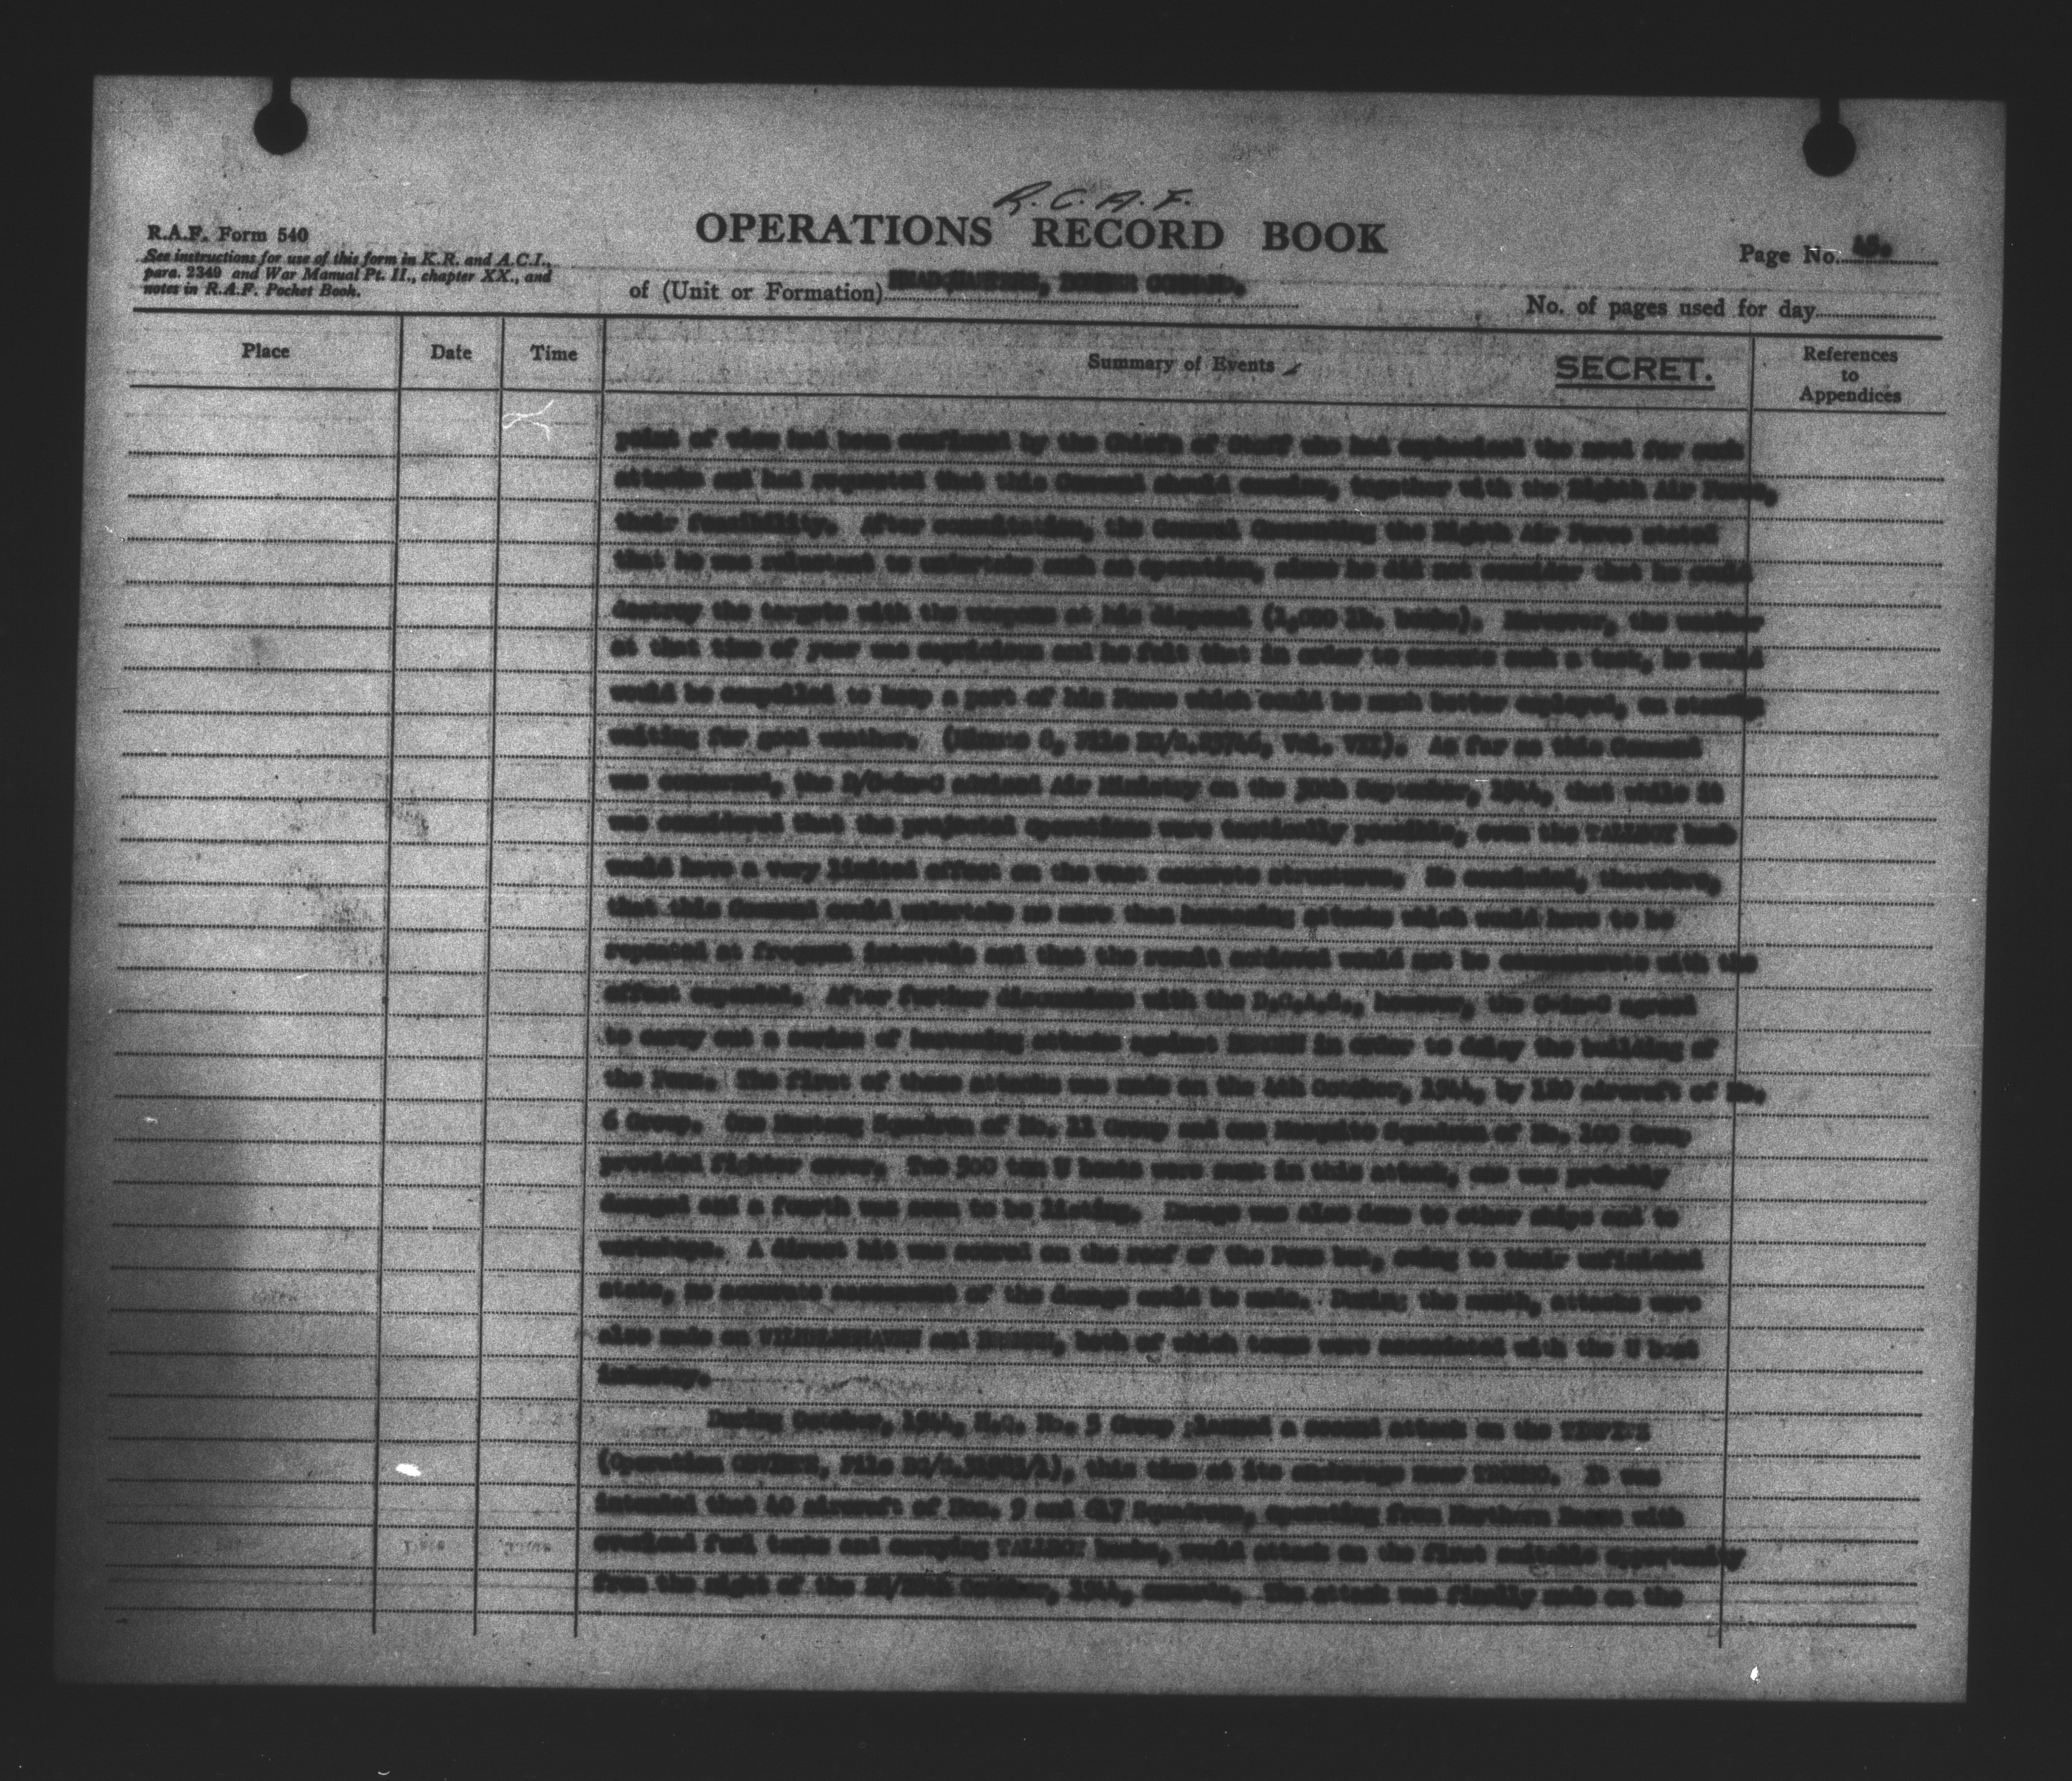 R. C. A. F.
OPERATIONS RECORD BOOK
R.A.F. Form 540
See instructions for use of this form in K.R. and A.C.I.,
para. 2349 and War Manual Pt. II., chapter XX., and
notes in R.A.F. Pocket Book.
Page No.
of (Unit or Formation) HEADQUARTERS, BOMBER COMMAND.
No. of pages used for day
Place Date Time Summary of Events SECRET. References
to
Appendices
point of view had been confirmed by the Chiefs of Staff who had emphasised the need for such
attacks and had requested that this Command should examine, together with the Eighth Air Force,
their feasibility. After consultation, the General Commanding the Eighth Air Force stated
that he was reluctant to undertake such an operation, since he did not consider that he could
destroy the targets with the weapons at his disposal (1,000 lb. bombs). Moreover, the weather
at that time of year was capricious and he felt that in order to execute such a task, he would
would be compelled to keep a part of his Force which could be much better employed, on standby
waiting for good weather. (Minute 6, File Vol. VII). As far as this Command
was concerned, the D/C-in-C advised Air Ministry on the 30th September, 1944, that while it
was considered that the projected operations were tactically possible, even the TALLBOY bomb
would have a very limited effect on the vast concrete structures. He concluded, therefore,
that this Command could undertake no more than harassing attacks which would have to be
repeated at frequent intervals and that the result achieved would not be commensurate with the
effort expended. After further discussions with the D.C.A.S., however, the C-in-C agreed
to carry out a series of harassing attacks against BERGEN in order to delay the building of
the Pens. The first of these attacks was made on the 4th October, 1944, by 120 aircraft of No.
6 Group. One Mustang Squadron of No. 11 Group and one Mosquito Squadron of No. 100 Group
provided fighter cover. Two 500 ton U boats were sunk in this attack, one was probably
damaged and a fourth was seen to be listing. Damage was also done to other ships and to
workshops. A direct hit was scored on the roof of the Pens but, owing to their unfinished
state, no accurate assessment of the damage could be made. During the month, attacks were
also made on WILHELMSHAVEN and BREMEN, both of which towns were associated with the U boat
industry.
During October, 1944, H.Q. No. 5 Group planned a second attack on the TIRPITZ
(Operation OBVIATE, File this time at its anchorage near TROMSO. It was
intended that 40 aircraft of Nos. 9 and 617 Squadrons, operating from Northern Bases with
overload fuel tanks and carrying TALLBOY bombs, would attack on the first suitable opportunity
from the night of the October, 1944, onwards. The attack was finally made on the